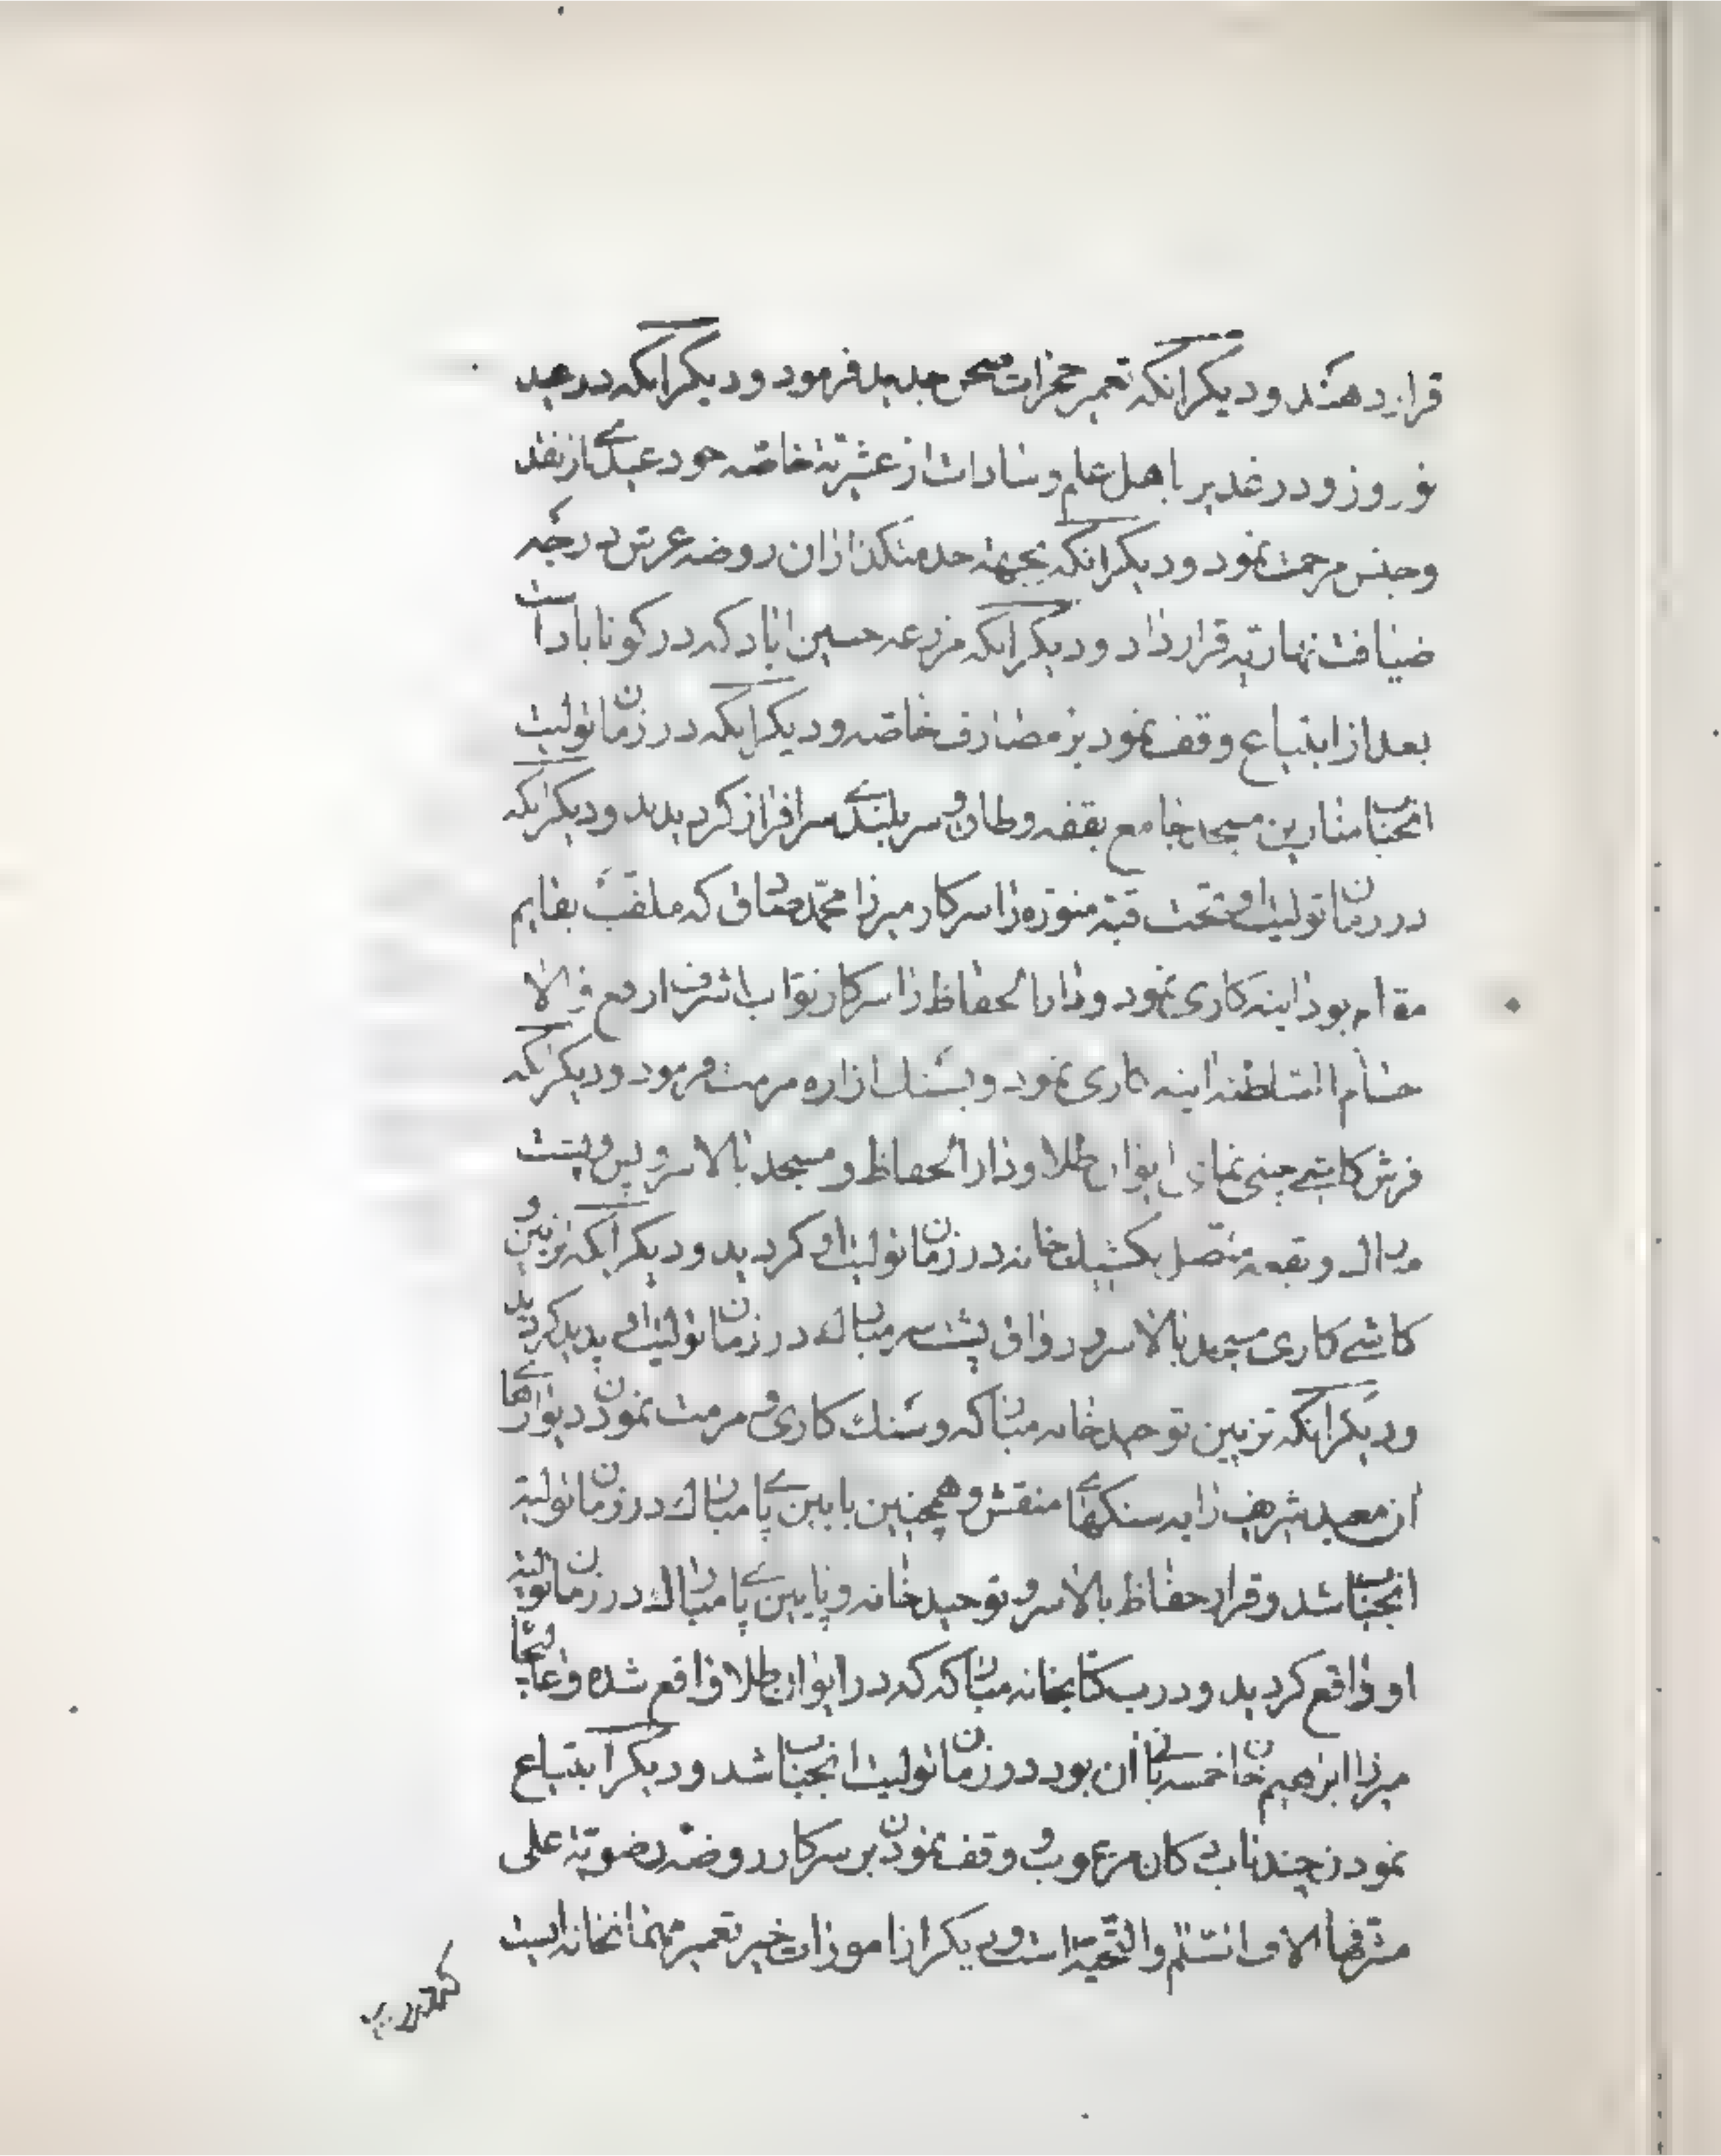 قرار دهند و دیکر انکه تعمیر حجرات صحن جدید فرمود و دیکر انکه در عید
نوروز و در غدیر باهل علم و سادات از عشریهٔ خاصه خود عیدی از نقد
و جنس مرحمت نمود و دیکر انکه بجهة خدمتکذاران روضه عرش درجه
ضیافت نهاریه قرار داد و دیکر انکه مزرعه حسین اباد که در کوناباد است
بعد از ابتیاع وقف نمود بر مصارف خاصه و دیکر انکه در زمان تولیت
انجناب مسجد جامع بقفه و طاق و سربلندی سرافراز کردیدند و دیکر انکه
در زمان تولیت او تحت قبه منوره را سرکار میرزا محمد صادق که ملقب بقایم
مقام بود اینه کاری نمود و دار الحفاظ را سرکار نواب اشرف ارفع والا
حسام السلطنه اینه کاری نمود و بسنک ازاره مرمت فرمود و دیکر انکه
فرش کاشی چینی نمای ایوان طلا و دار الحفاظ و مسجد بالاسر و پس و پشت
مبارک و بقعه متصل بکشیک خانه در زمان تولیت او کردید و دیکر انکه تزیین و
کاشی کاری مسجد بالاسر و رواق پشت سر مبارک در زمان تولیت او پدید کردید
و دیکر انکه تزیین توحید خانه مبارکه و سنک کاری و مرمت نمودن دیوارهای
ان معبد شریف را به سنکهای منقش و همچنین پایین پای مبارک در زمان تولیت
انجناب شد و قرار حفاظ بالاسر و توحید خانه و پایین پای مبارک در زمان تولیت
او واقع کردید و درب کتابخانه مبارکه که در ایوان طلا واقع شده و عالیجا
میرزا ابرهیم خان خمسه بانی آن بود در زمان تولیت انجناب شد و دیکر ابتیاع
نمودن چند باب دکان مرغوب و وقف نمودن بر سرکار روضه رضویه علی
مشرفها الاف السلم و التحیه است و دیکر از امورات خیر تعمیر مهمانخانه ایست
که در